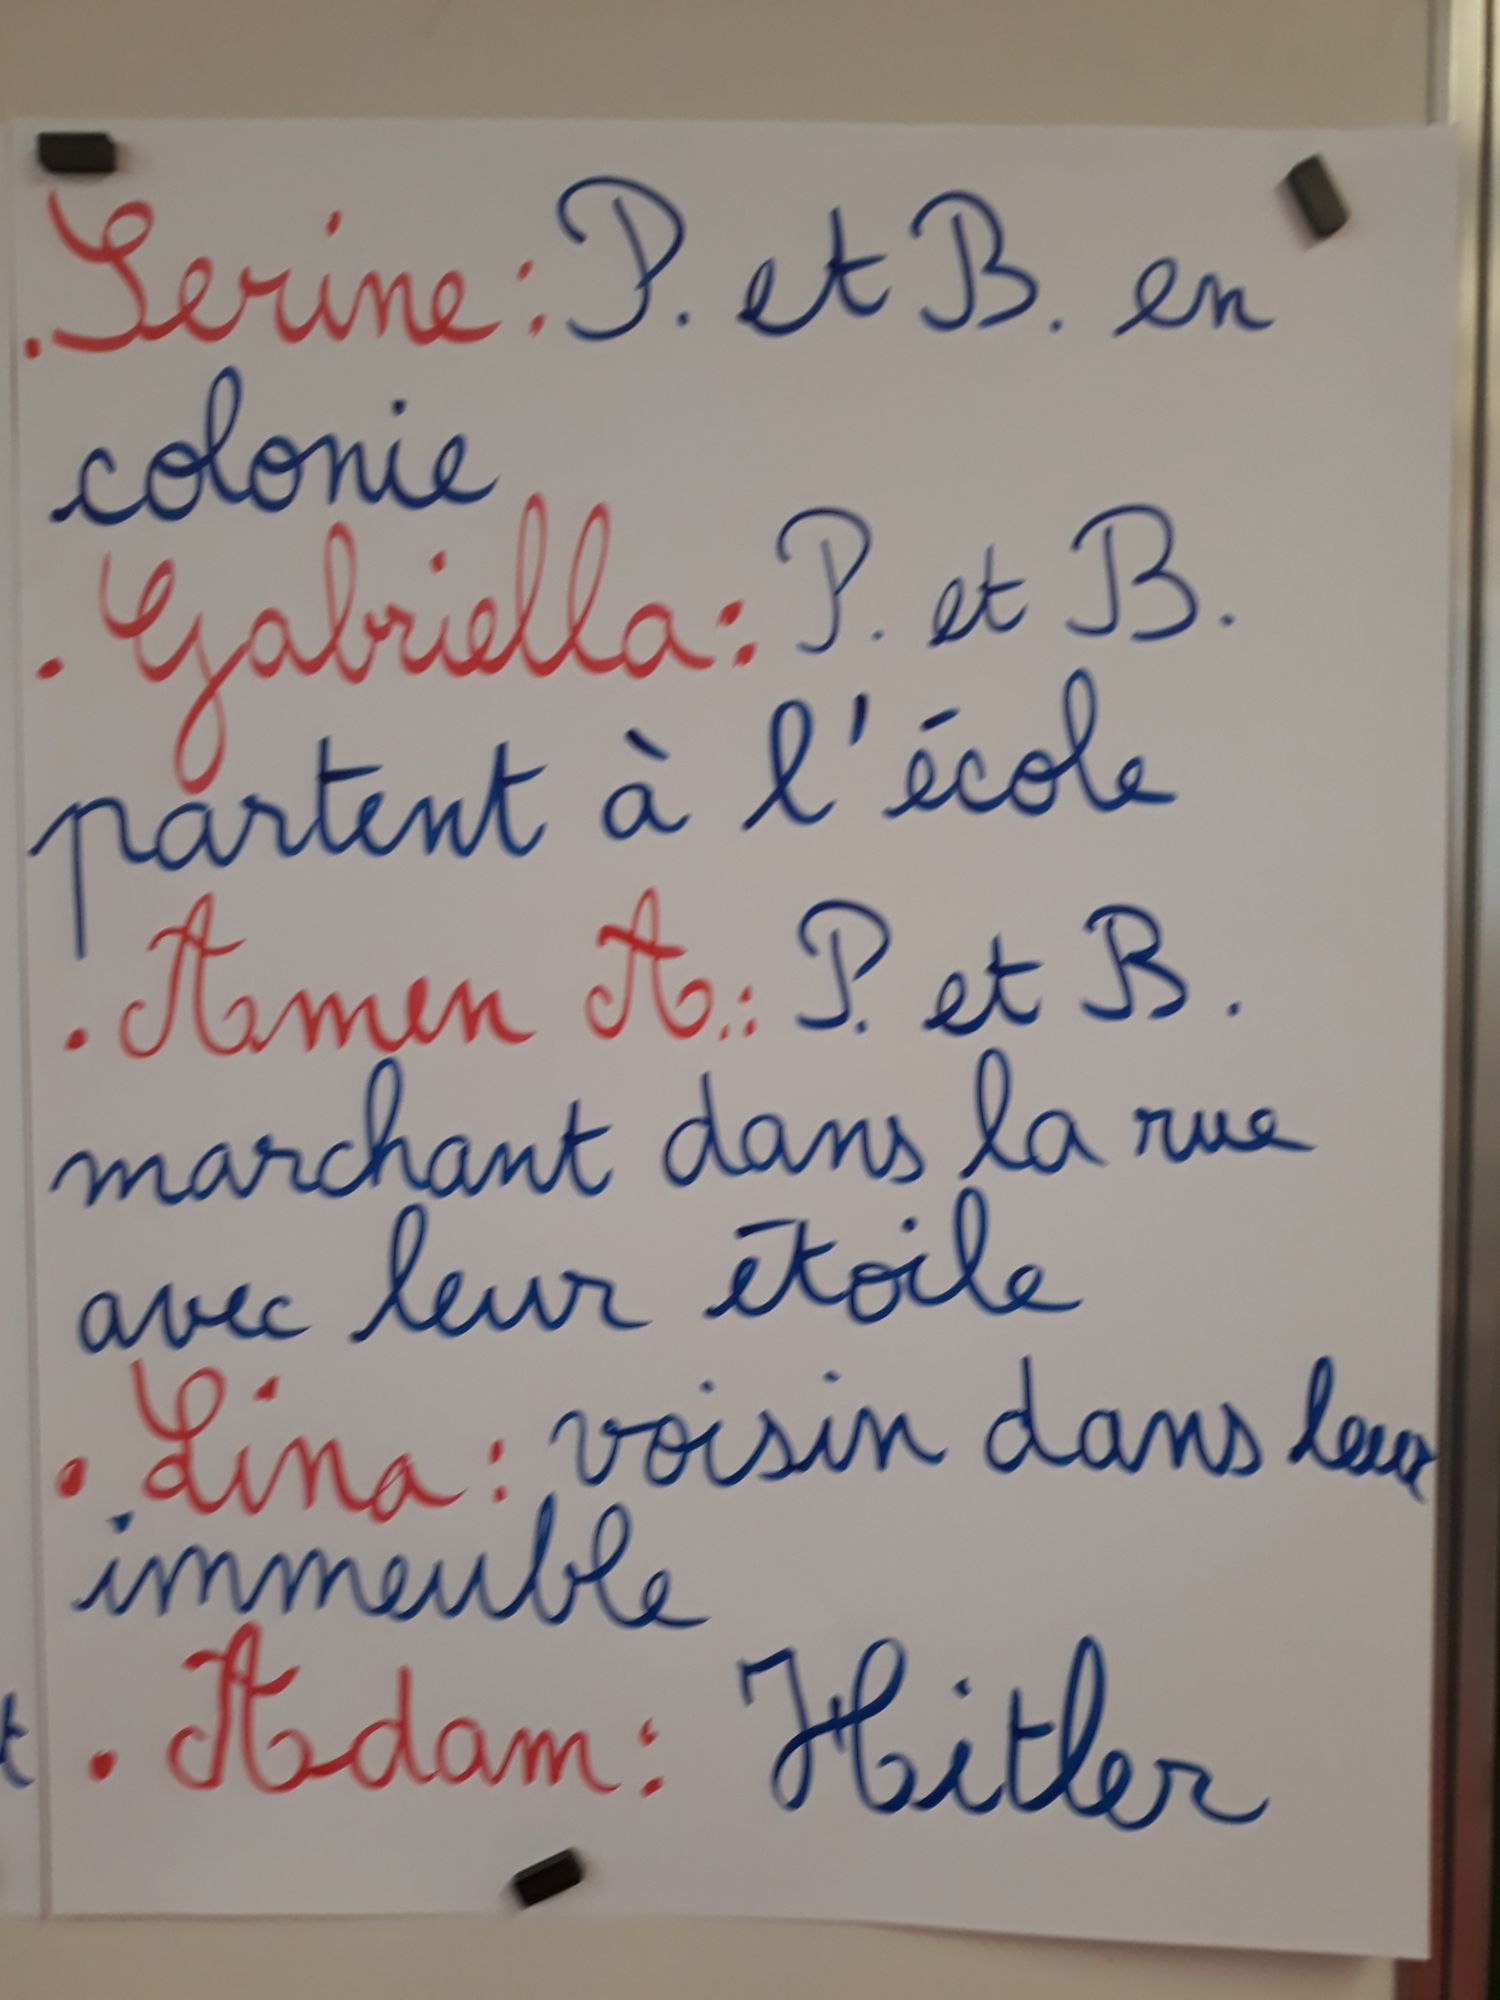 . Serine : P. et B. en
colonie
. Gabriella : P. et B.
partent à l'école
. Amen A. : P. et B.
marchant dans la rue
avec leur étoile
. Lina : voisin dans leur
immeuble
. Adam : Hitler
t